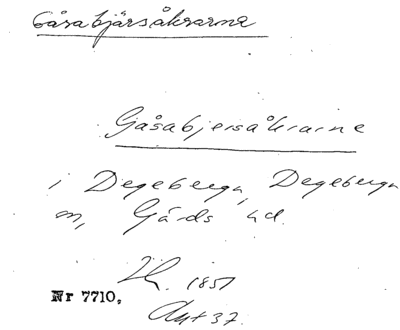 Gåsabjärsåkrarne
Gåsabjersåkrarne
i Degeberga, Degeberga
sn, Gärds hd.
1851
Nr 7710,
Akt 37.